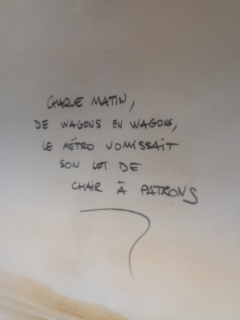 CHAQUE MATIN,
DE WAGONS EN WAGONS,
LE MÉTRO VOMISSAIT
SON LOT DE
CHAIR À PATRONS